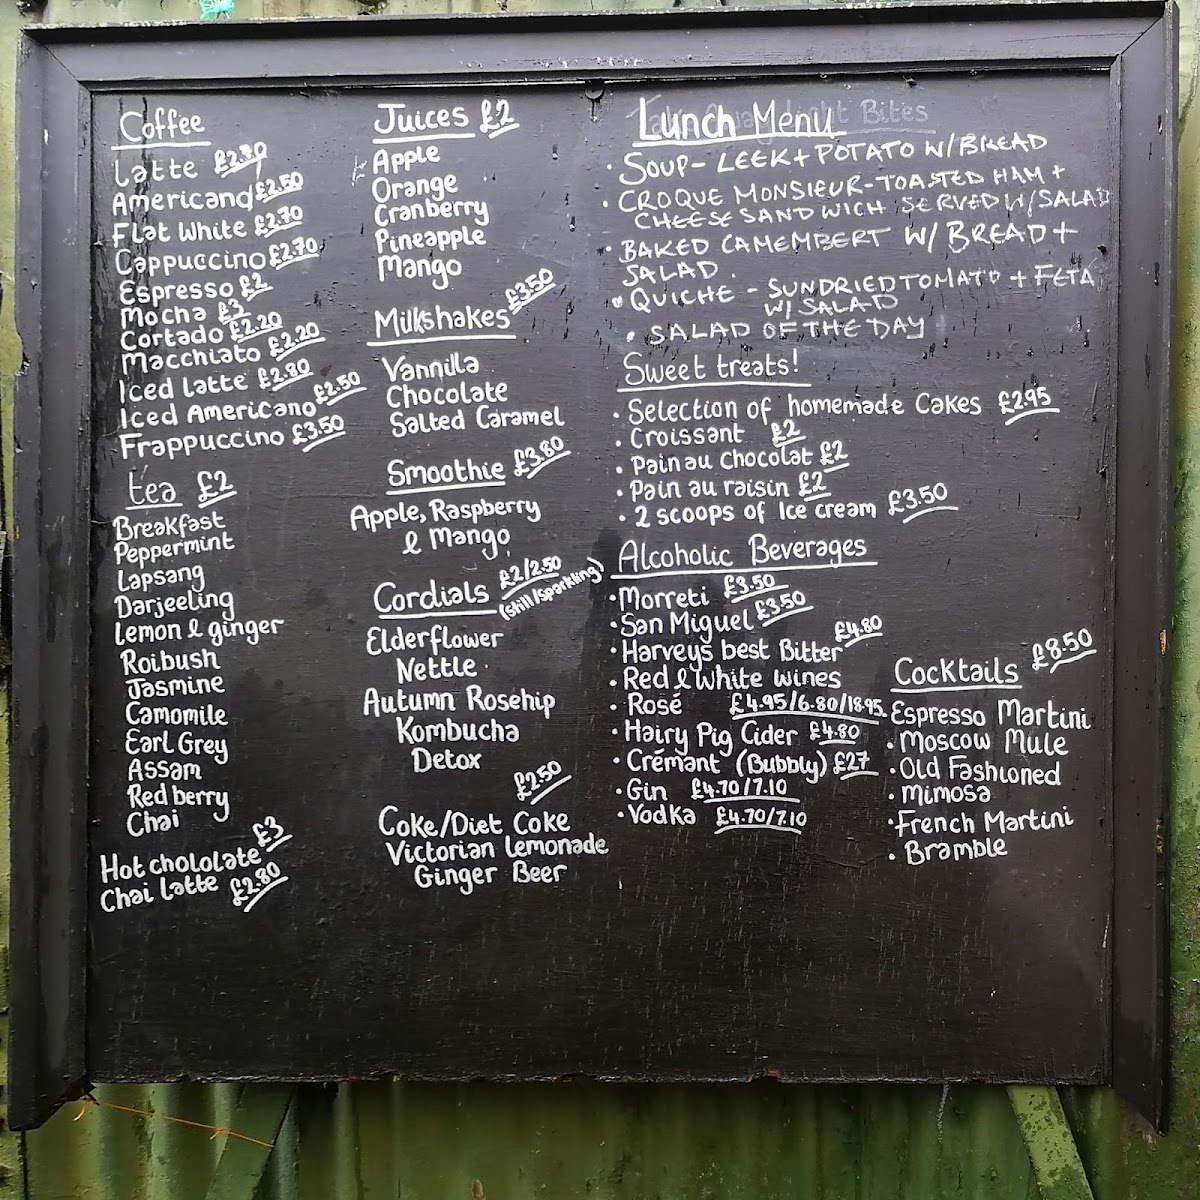 Coffee
Latte £2.70
Americano £2.50
Flat White £2.70
Cappuccino £2.70
Espresso £2
Mocha £3
Cortado £2.20
Macchiato £2.20
Iced Latte £2.80
Iced Americano £2.50
Frappuccino £3.50
tea £2
Breakfast
Peppermint
Lapsang
Darjeeling
Lemon & ginger
Roibush
Jasmine
Camomile
Earl Grey
Assam
Red berry
Chai
Hot chololate £3
Chai latte £2.80
Juices £2
Apple
Orange
Cranberry
Pineapple
Mango
Milkshakes £3.50
Vannilla
Chocolate
Salted Caramel
Smoothie £3.80
Apple, Raspberry
& Mango
Cordials £2/2.50
(still/sparkling)
Elderflower
Nettle
Autumn Rosehip
Kombucha
Detox
£2.50
Coke/Diet Coke
Victorian lemonade
Ginger Beer
Lunch Menu Light Bites
· SOUP - LEEK + POTATO W/BREAD
· CROQUE MONSIEUR - TOASTED HAM +
CHEESE SANDWICH SERVED W/SALAD
· BAKED CAMEMBERT W/ BREAD +
SALAD.
· QUICHE - SUNDRIED TOMATO + FETA
W/ SALAD
· SALAD OF THE DAY
Sweet treats!
· Selection of homemade Cakes £2.95
· Croissant £2
· Pain au Chocolat £2
· Pain au raisin £2
· 2 scoops of Ice cream £3.50
Alcoholic Beverages
· Morreti £3.50
· San Miguel £3.50
· Harveys best Bitter £4.80
· Red & White wines
· Rosé £4.95/6.80/18.95
· Hairy Pig Cider £4.80
· Crémant (Bubbly) £27
· Gin £4.70/7.10
· Vodka £4.70/7.10
Cocktails £8.50
· Espresso Martini
· Moscow Mule
· Old Fashioned
· Mimosa
· French Martini
· Bramble